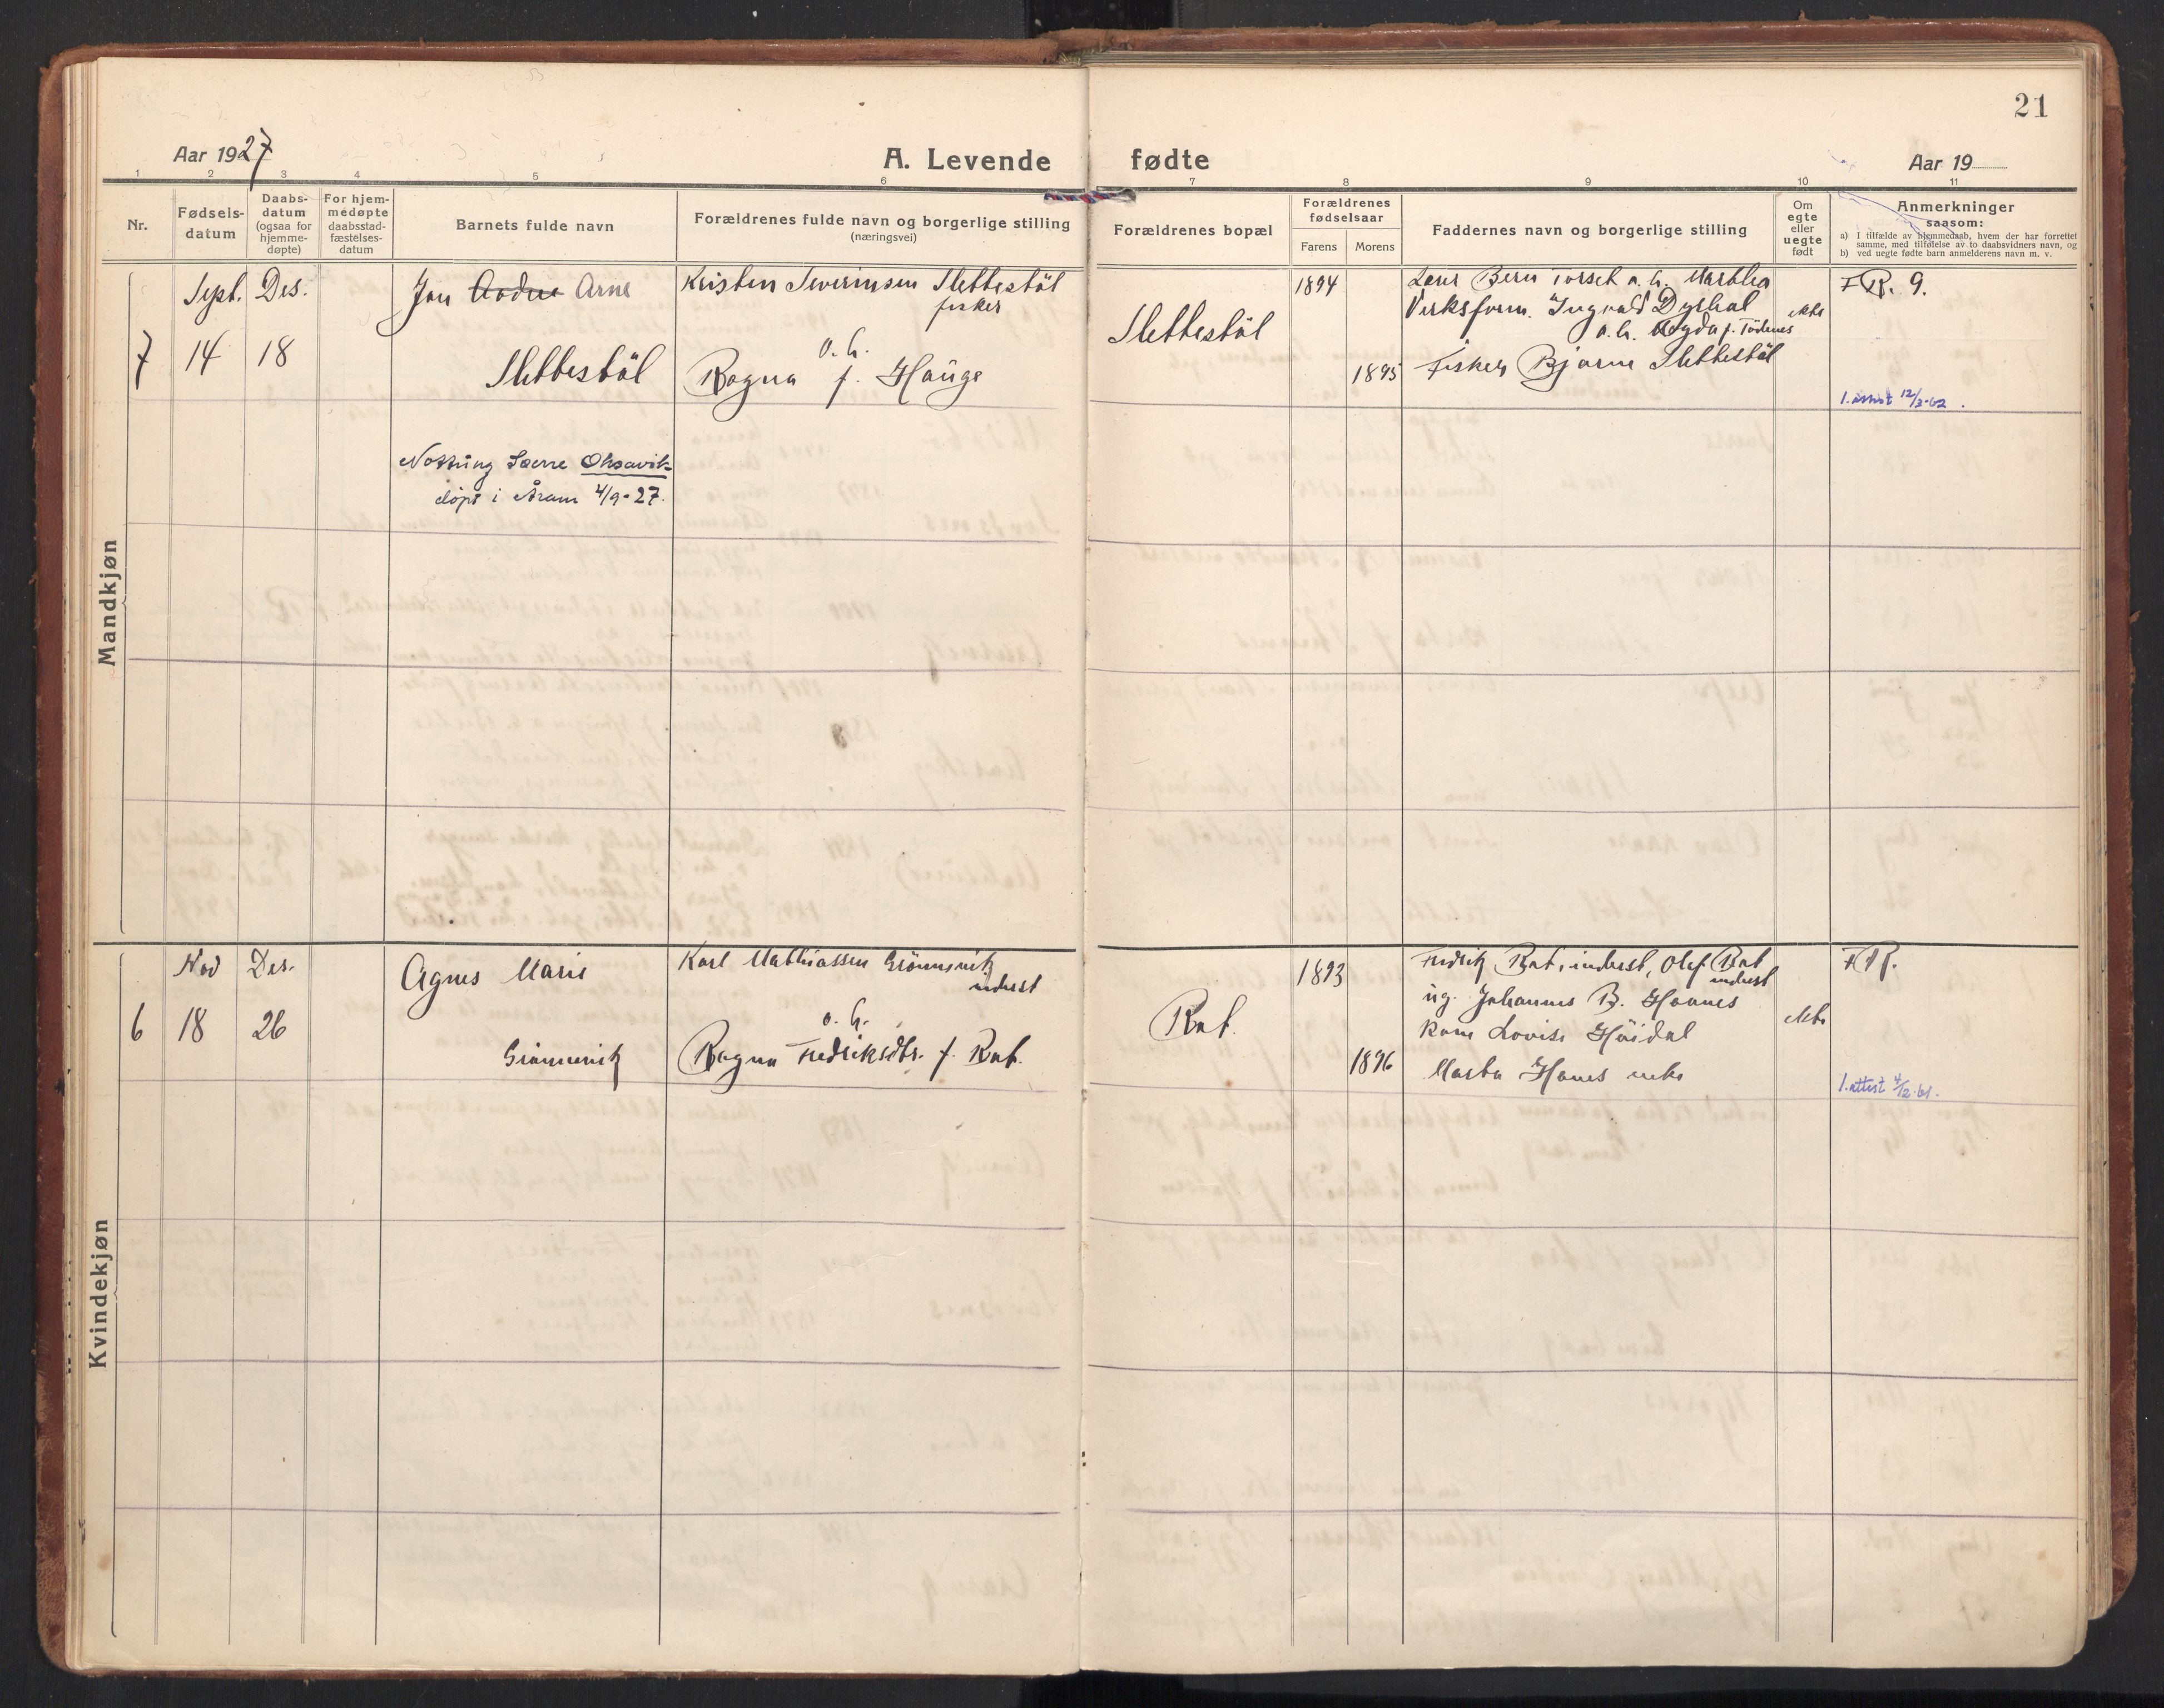 21
Aar 1927
A. Levende
fødte
Aar 19
1 2 3 4 5 6 7 8 9 10 11
Nr.
Fødsels-
datum
Daabs-
datum
(ogsaa for
hjemme-
døpte)
For hjem-
medøpte
daabsstad-
fæstelses-
datum
Barnets fulde navn
Forældrenes fulde navn og borgerlige stilling
(næringsvei)
Forældrenes bopæl
Forældrenes
fødselsaar
Farens Morens
Faddernes navn og borgerlige stilling
Om
egte
eller
uegte
født
Anmerkninger
saasom:
a) I tilfælde av hjemmedaab, hvem der har forrettet
samme, med tilføielse av to daabsvidners navn, og
b) ved uegte fødte barn anmelderens navn m. v.
Mandkjøn
7
Sept. Des.
14 18
Jon Arne
Slettestöl
Kristen Severinsen Slettestöl
fisker
o. h.
Ragna f. Hauge
Slettestöl
1894
1895
Lars Bern a. h.
Ingvald Dyrhol
o. h. Magda f.
Fisker Bjarne Slettestöl
ekte
F R. 9.
1. attest 12/3-62.
Nottung Sverre Oksavik
döpt i Åram 4/9-27.
Kvindekjøn
6
Nov Des.
18 26
Agnes Marie
Grönnevik
Karl Mathiassen Grönnevik
inderst
o. h.
Ragna Fredriksdtr. f. Rat.
Rat.
1893
1896
Fredrik Rat, inderst, Olaf Rat
inderst
ug. Johannes B. Haanes
Kone Lovise Höidal
Marta
ekte
F R.
1. attest 4/12-61.